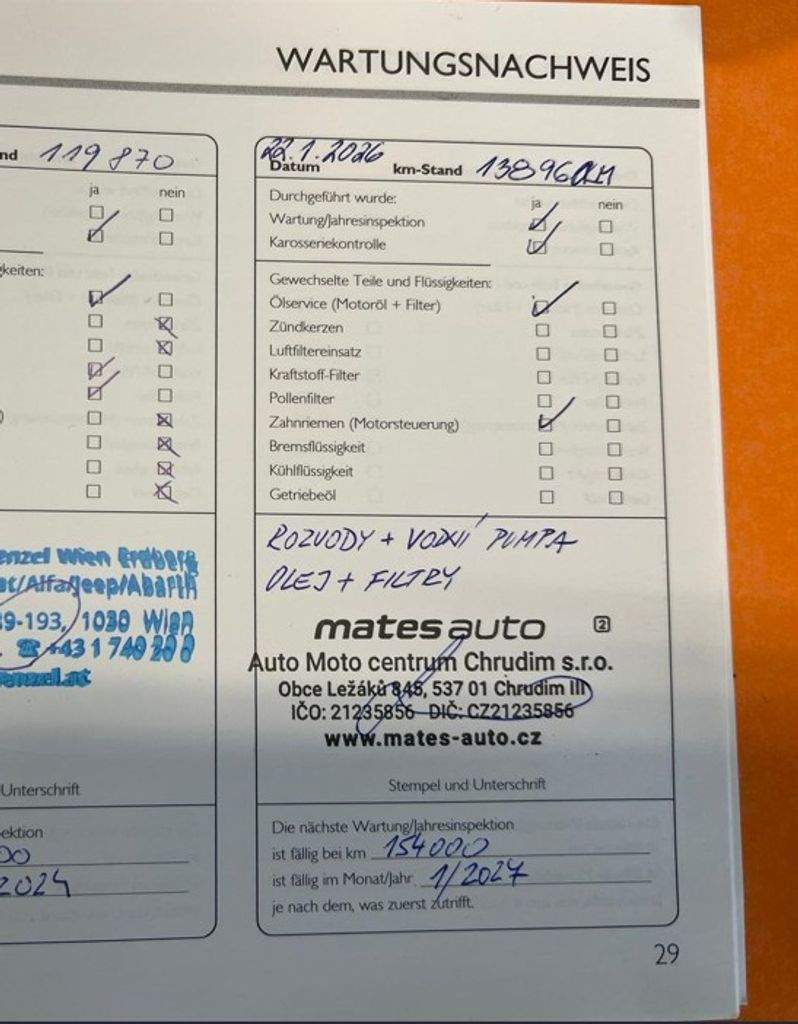 WARTUNGSNACHWEIS
nd 119 870
ja nein
keiten:
enzel Wien Erdberg
at/Alfa/Jeep/Abarth
9-193, 1030 Wien
☎ +43 1 740 20 0
enzel.at
Unterschrift
ektion
00
2024
22.1.2026
Datum km-Stand 138960KM
Durchgeführt wurde: ja nein
Wartung/Jahresinspektion
Karosseriekontrolle
Gewechselte Teile und Flüssigkeiten:
Ölservice (Motoröl + Filter)
Zündkerzen
Luftfiltereinsatz
Kraftstoff-Filter
Pollenfilter
Zahnriemen (Motorsteuerung)
Bremsflüssigkeit
Kühlflüssigkeit
Getriebeöl
ROZVODY + VODNÍ PUMPA
OLEJ + FILTRY
mates auto 2
Auto Moto centrum Chrudim s.r.o.
Obce Ležáků 845, 537 01 Chrudim III
IČO: 21235856 DIČ: CZ21235856
www.mates-auto.cz
Stempel und Unterschrift
Die nächste Wartung/Jahresinspektion
ist fällig bei km 154000
ist fällig im Monat/Jahr 1/2027
je nach dem, was zuerst zutrifft.
29